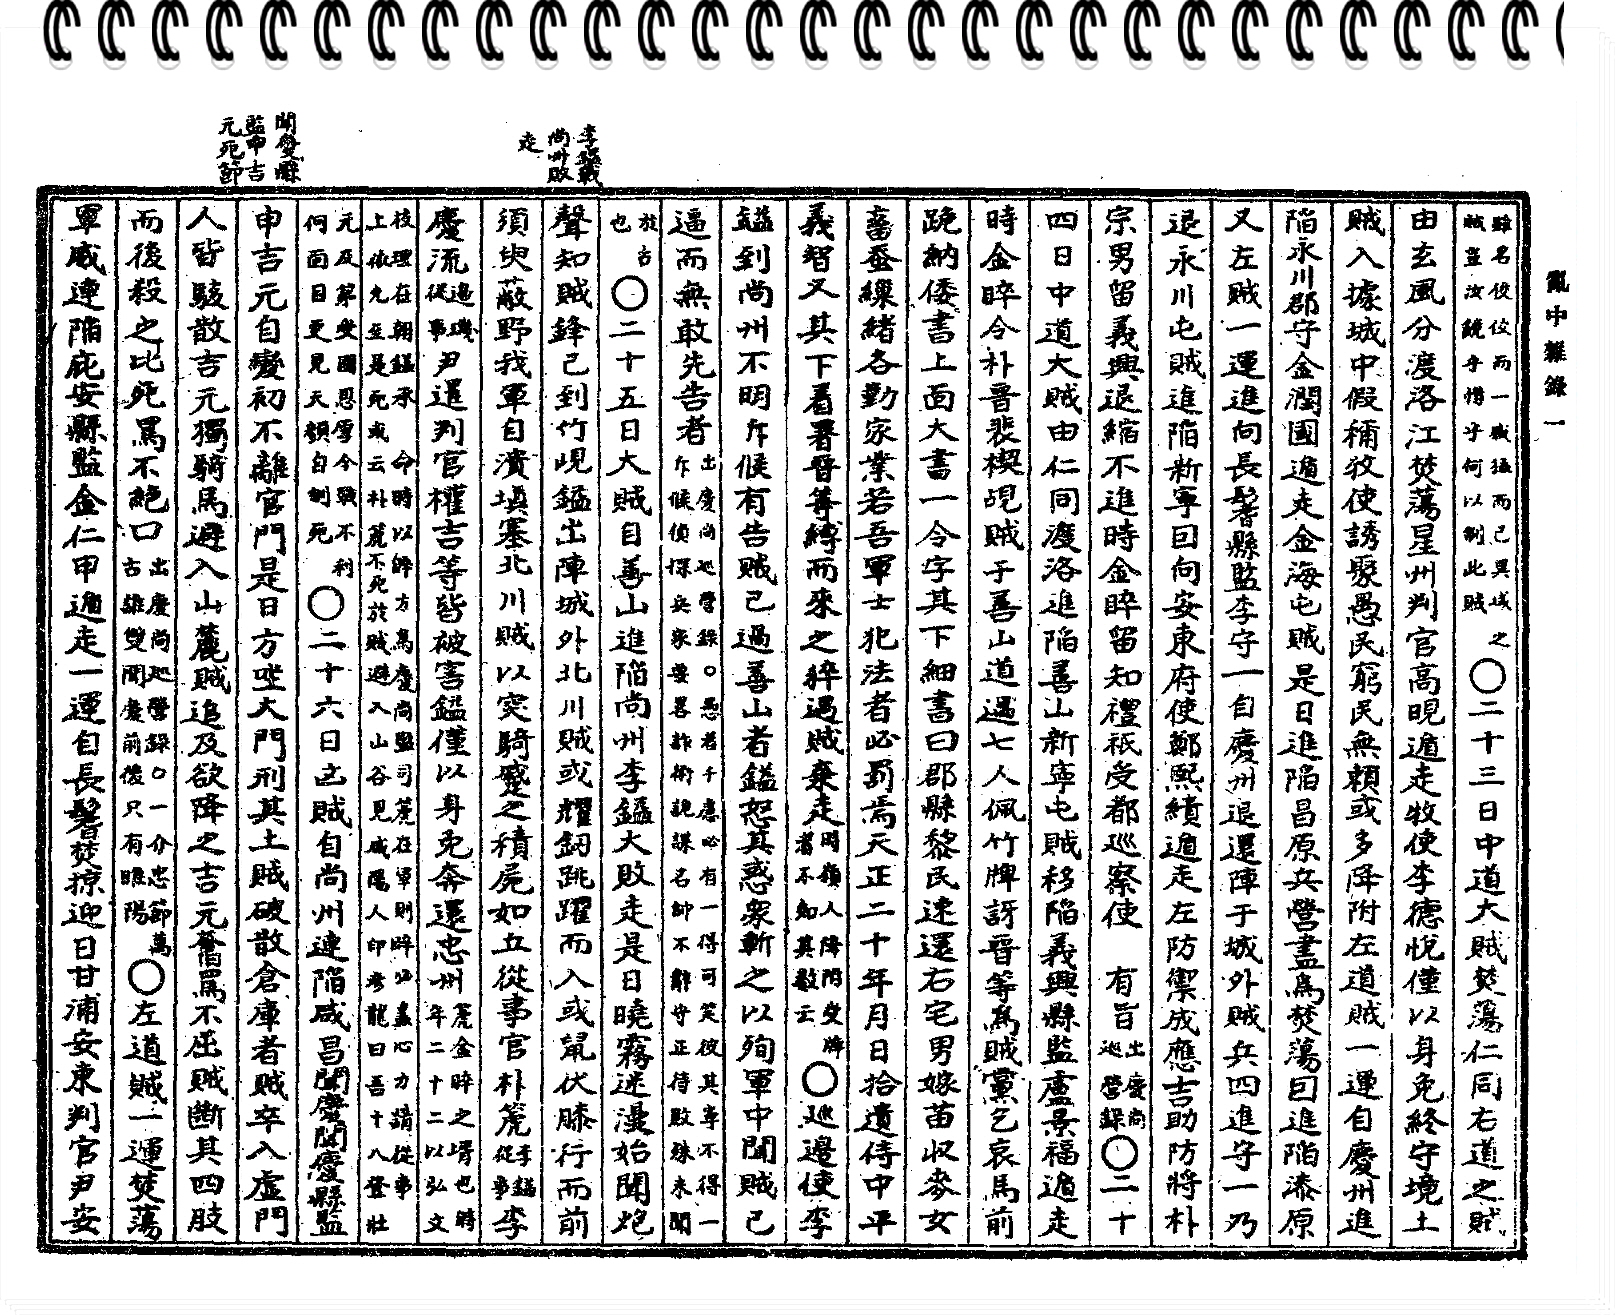 亂中雜錄一
雖名俊佼而一賊猛而已異哉之
賊豈汝饒乎惜乎何以制此賊
〇二十三日中道大賊焚蕩仁同右道之賊
由玄風分渡洛江焚蕩星州判官高晛遁走牧使李德悅僅以身免終守境土
賊入據城中假稱牧使誘聚愚民窮民無賴或多降附左道賊一運自慶州進
陷永川郡守金潤國遁走金海屯賊是日進陷昌原兵營盡爲焚蕩囘進陷漆原
又左賊一運進向長鬐縣監李守一自慶州退還陣于城外賊兵四進守一乃
退永川屯賊進陷新寧囘向安東府使鄭熙績遁走左防禦成應吉助防將朴
宗男留義興退縮不進時金睟留知禮祇受都巡察使 有旨
出慶尚
巡營錄
〇二十
四日中道大賊由仁同渡洛進陷善山新寧屯賊移陷義興縣監盧景福遁走
時金睟令朴晋裴楔覘賊于善山道遇七人佩竹牌訝晋等爲賊黨乞哀馬前
跪納倭書上面大書一令字其下細書曰郡縣黎民速還右宅男嫁苗收麥女
蓄蚕繰緖各勤家業若吾軍士犯法者必罰焉天正二十年月日拾遺侍中平
義智又其下着署晋等縛而來之猝遇賊棄走
聞嶺人降附受牌
者不知其數云
〇巡邊使李
鎰到尙州不明斥候有告賊已過善山者鎰怒其惑衆斬之以殉軍中聞賊已
逼而無敢先告者
出慶尚巡營錄〇愚者千慮必有一得可笑彼其專不得一
斥候偵探兵家要畧詐術詭謀名帥不辭守正待敗殊未聞
於古
也
〇二十五日大賊自善山進陷尙州李鎰大敗走是日曉霧迷漫始聞炮
聲知賊鋒已到竹峴鎰出陣城外北川賊或耀釰跳躍而入或鼠伏膝行而前
須臾蔽野我軍自潰塡塞北川賊以突騎蹙之積屍如丘從事官朴箎
李鎰
從事
李
慶流
邊璣
從事
尹暹判官權吉等皆被害鎰僅以身免奔還忠州
箎金睟之壻也時
年二十二以弘文
校理在朝鎰承 命時以睟方爲慶尚監司箎在軍則睟必盡心力請從事
上依允至是死或云朴箎不死於賊避入山谷見咸陽人印考龍曰吾十八登壯
元及第受國恩厚今戰不利
何面目更見天顔自刎死
〇二十六日丘賊自尙州連陷咸昌聞慶聞慶縣監
申吉元自變初不離官門是日方坐大門刑其土賊破散倉庫者賊卒入虛門
人皆駭散吉元獨騎馬避入山麓賊追及欲降之吉元奮罵不屈賊斷其四肢
而後殺之比死罵不絕口
出慶尚巡營錄〇一介忠節萬
古雖雙聞慶前後只有睢陽
〇左道賊一運焚蕩
軍威連陷庇安縣監金仁甲遁走一運自長鬐焚掠迎日甘浦安東判官尹安
李鎰戰
尚州敗
走
聞慶縣
監申吉
元死節